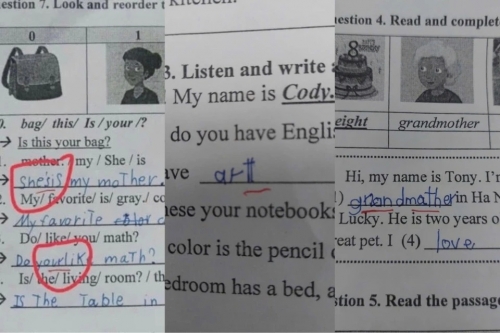 estion 7. Look and reorder t
0
1
bag/ this/ Is / your /?
→ Is this your bag?
mother. / my / She / is
→ she'sis my mother.
2. My/ favorite/ is/ gray./ co
→ My favorite color c
Do/ like/ you/ math?
→ Do yourlik math?
Is/ the/ living/ room? / th
→ Is The Table in
kitchen.
3. Listen and write a
My name is Cody.
do you have Engli
ave art
ese your notebook
color is the pencil
edroom has a bed, a
estion 4. Read and complet
8
eight
grandmother
Hi, my name is Tony. I'm
1) grandmather in Ha N
Lucky. He is two years o
reat pet. I (4) love
stion 5. Read the passage